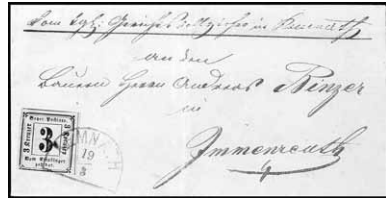 Vom Kgl. Gerichtsvollzieher in Kemnath
an den
Bauern Herrn Andreas Binzer
in
Immenreuth
Bayer. Posttaxe
3 Kreuzer
3
3 Kreuzer
Vom Empfänger
zahlbar
MNATH
19